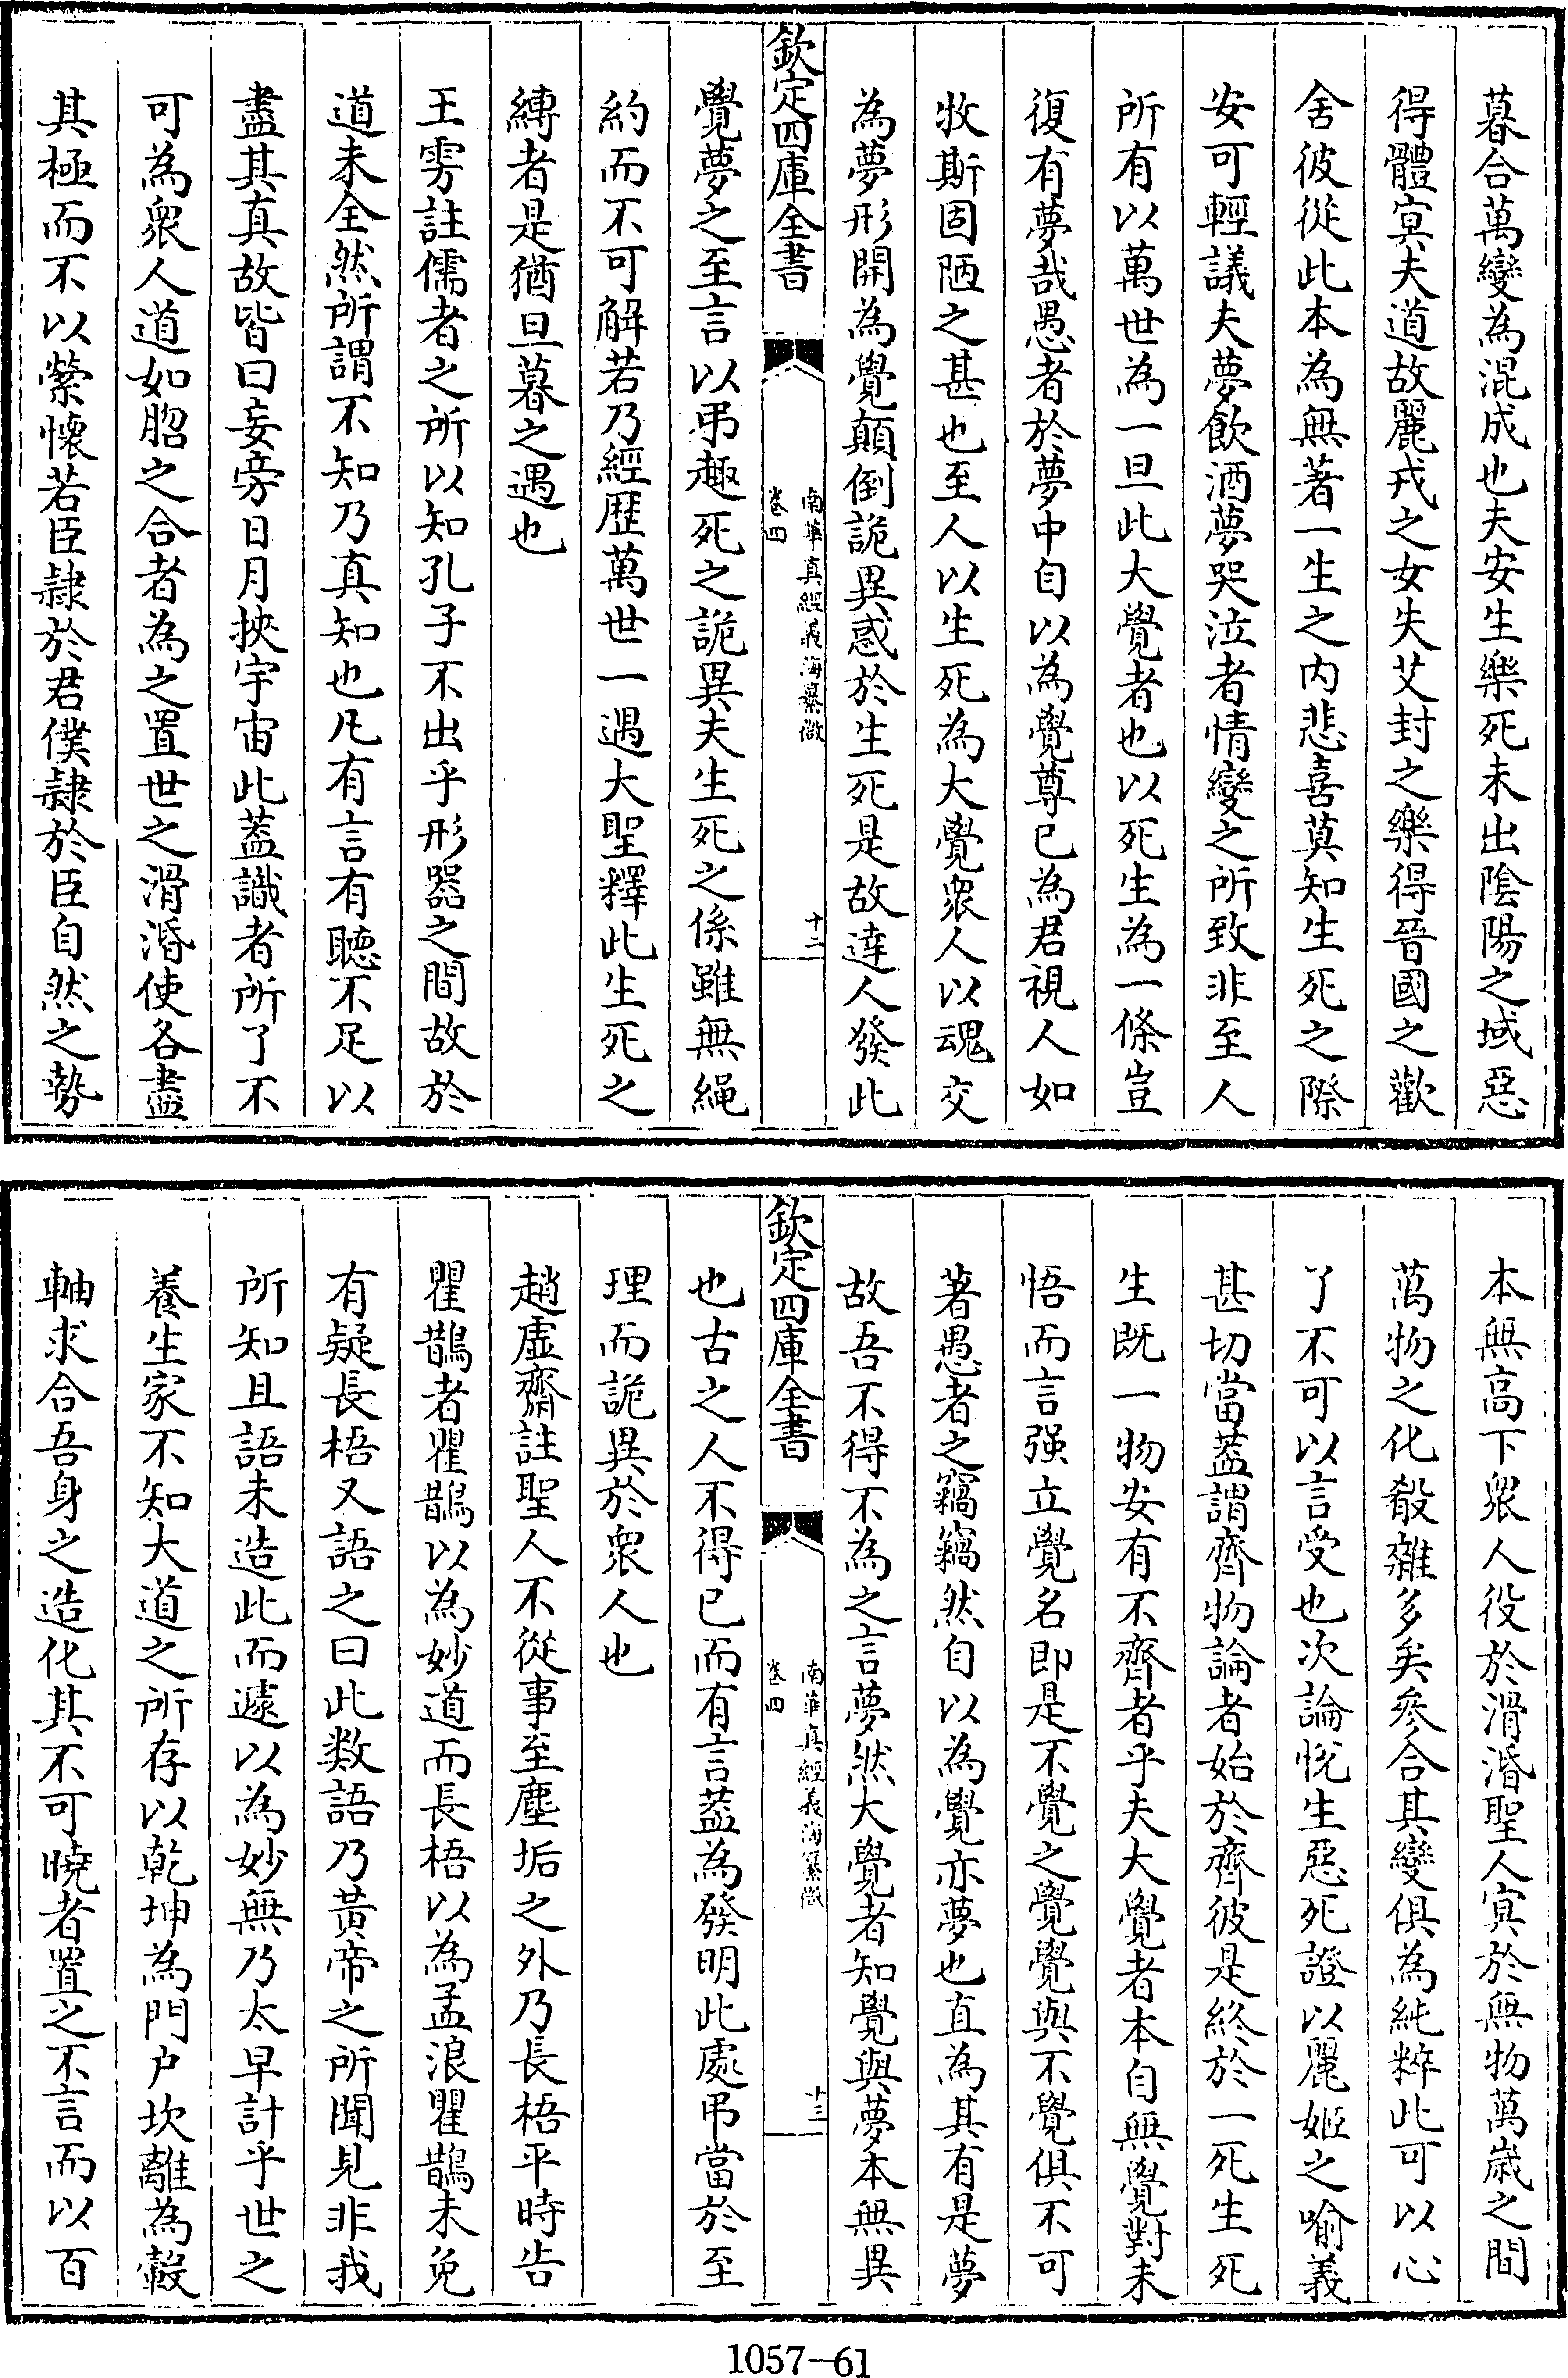 暮合萬變為混成也夫安生樂死未出陰陽之域惡
得體㝠夫道故麗戎之女失艾封之樂得晉國之歡
舍彼從此本為無著一生之内悲喜莫知生死之際
安可輕議夫夢飲酒夢哭泣者情變之所致非至人
所有以萬世為一旦此大覺者也以死生為一條豈
復有夢哉愚者於夢中自以為覺尊已為君視人如
牧斯固陋之甚也至人以生死為大覺衆人以魂交
為夢形開為覺顛倒詭異惑於生死是故達人發此
欽定四庫全書
南華真經義海纂微
卷四
十二
覺夢之至言以弔趣死之詭異夫生死之係雖無繩
約而不可解若乃經歴萬世一遇大聖釋此生死之
縛者是猶旦暮之遇也
王雱註儒者之所以知孔子不出乎形器之間故於
道未全然所謂不知乃真知也凡有言有聽不足以
盡其真故皆曰妄旁日月挾宇宙此葢識者所了不
可為衆人道如脗之合者為之置世之滑湣使各盡
其極而不以縈懷若臣隷於君僕隷於臣自然之勢
本無高下衆人役於滑湣聖人㝠於無物萬嵗之間
萬物之化殽雜多矣叅合其變俱為純粹此可以心
了不可以言受也次論悅生惡死證以麗姬之喻義
甚切當葢謂齊物論者始於齊彼是終於一死生死
生既一物安有不齊者乎夫大覺者本自無覺對未
悟而言强立覺名即是不覺之覺覺與不覺俱不可
著愚者之竊竊然自以為覺亦夢也直為其有是夢
故吾不得不為之言夢然大覺者知覺與夢本無異
欽定四庫全書
南華真經義海纂微
卷四
十三
也古之人不得已而有言葢為發明此處弔當於至
理而詭異於衆人也
趙虚齋註聖人不從事至塵垢之外乃長梧平時告
瞿鵲者瞿鵲以為妙道而長梧以為孟浪瞿鵲未免
有疑長梧又語之曰此數語乃黃帝之所聞見非我
所知且語未造此而遽以為妙無乃太早計乎世之
養生家不知大道之所存以乾坤為門户坎離為轂
軸求合吾身之造化其不可曉者置之不言而以百
1057—61